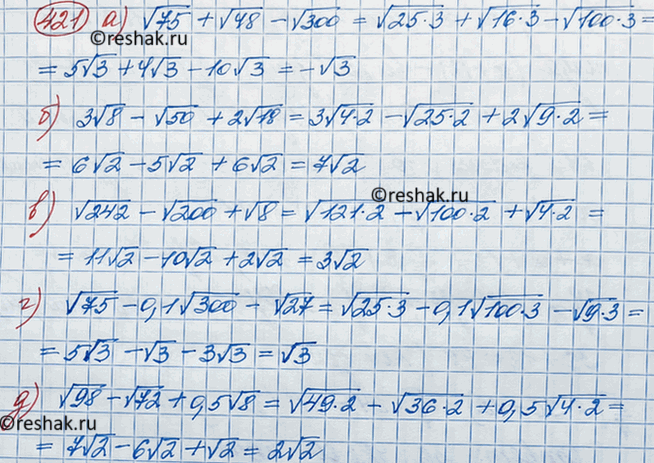 421 а) √75 + √48 - √300 = √25·3 + √16·3 - √100·3 =
©reshak.ru
= 5√3 + 4√3 - 10√3 = -√3
б) 3√8 - √50 + 2√18 = 3√4·2 - √25·2 + 2√9·2 =
= 6√2 - 5√2 + 6√2 = 7√2
©reshak.ru
в) √242 - √200 + √8 = √121·2 - √100·2 + √4·2 =
= 11√2 - 10√2 + 2√2 = 3√2
г) √75 - 0,1√300 - √27 = √25·3 - 0,1√100·3 - √9·3 =
= 5√3 - √3 - 3√3 = √3
д) √98 - √72 + 0,5√8 = √49·2 - √36·2 + 0,5√4·2 =
©reshak.ru
= 7√2 - 6√2 + √2 = 2√2